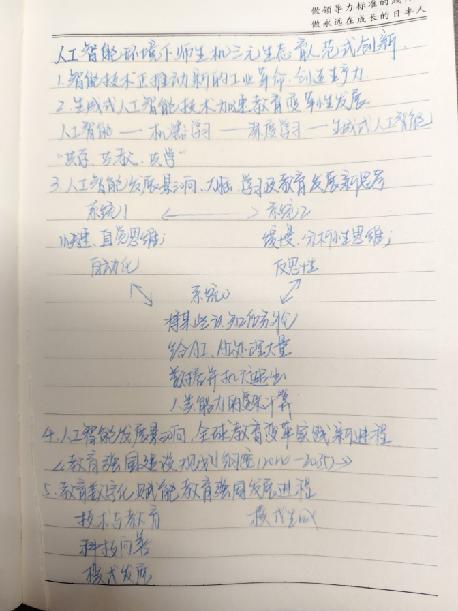 做领导力标准的
做永远在成长的日丰人
人工智能环境下师生机三元生态育人范式创新
1.智能技术正推动新的工业革命,创造生产力
2.生成式人工智能技术加速教育变革性发展
人工智能——机器学习——深度学习——生成式人工智能
3.人工智能发展影响大脑学习及教育发展新思考
系统1 系统2
快速、直觉思维; 缓慢、分析性思维;
自动化 反思性
系统0
将某些认知任务外化
给AI,
数据并
人类能力的复杂计算
4.人工智能发展影响全球教育变革实践新进程
《教育强国建设规划纲要(2024-2035)》
5.教育数字化赋能教育强国发展进程
技术与教育 模式生成
科技向善
模式发展